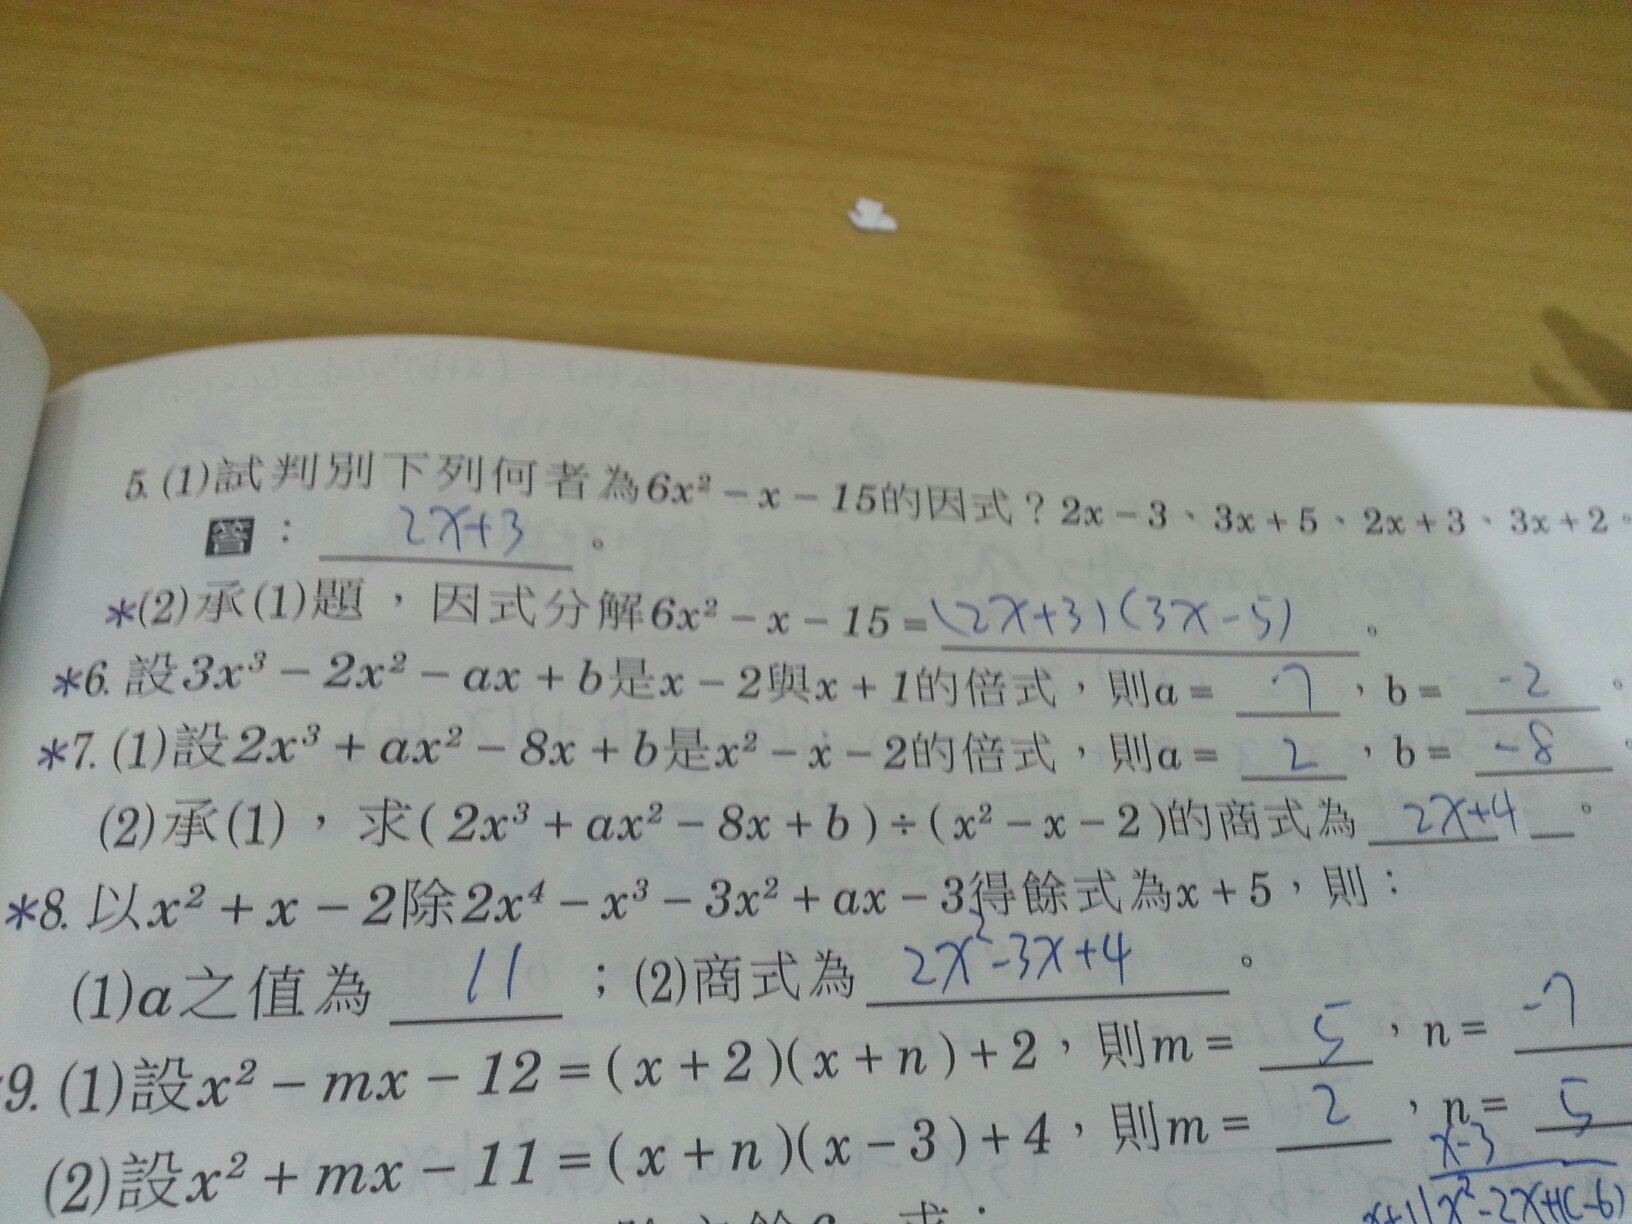 5. (1)試判別下列何者為6x² − x − 15的因式？2x − 3、3x + 5、2x + 3、3x + 2。
答： 2x+3 。
*(2)承(1)題，因式分解6x² − x − 15 = (2x+3)(3x-5) 。
*6. 設3x³ − 2x² − ax + b是x − 2與x + 1的倍式，則a = 7 ，b = -2 。
*7. (1)設2x³ + ax² − 8x + b是x² − x − 2的倍式，則a = 2 ，b = -8 。
(2)承(1)，求( 2x³ + ax² − 8x + b ) ÷ ( x² − x − 2 )的商式為 2x+4 。
*8. 以x² + x − 2除2x⁴ − x³ − 3x² + ax − 3得餘式為x + 5，則：
(1)a之值為 11 ；(2)商式為 2x²-3x+4 。
9. (1)設x² − mx − 12 = ( x + 2 )( x + n ) + 2，則m = 5 ，n = -7
(2)設x² + mx − 11 = ( x + n )( x − 3 ) + 4，則m = 2 ，n = 5
x-3
x+1) x²-2x+(c-6)